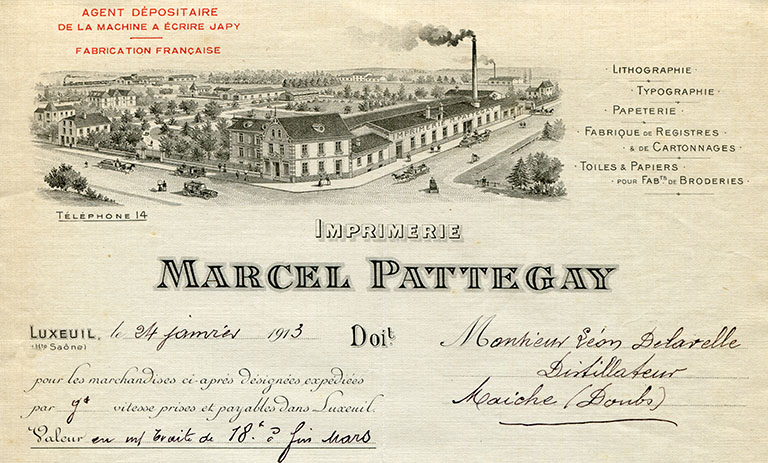 AGENT DÉPOSITAIRE
DE LA MACHINE A ÉCRIRE JAPY
FABRICATION FRANÇAISE
· LITHOGRAPHIE ·
· TYPOGRAPHIE ·
· PAPETERIE ·
· FABRIQUE DE REGISTRES
& DE CARTONNAGES ·
· TOILES & PAPIERS
POUR FABTN DE BRODERIES ·
TÉLÉPHONE 14
IMPRIMERIE
MARCEL PATTEGAY
LUXEUIL, le 24 janvier 1913
(Hte Saône)
Doit
Monsieur Léon Delavelle
Distillateur
Maiche (Doubs)
pour les marchandises ci-après désignées expédiées
par gde vitesse prises et payables dans Luxeuil.
Valeur en m/ traite de 18.f à fin Mars